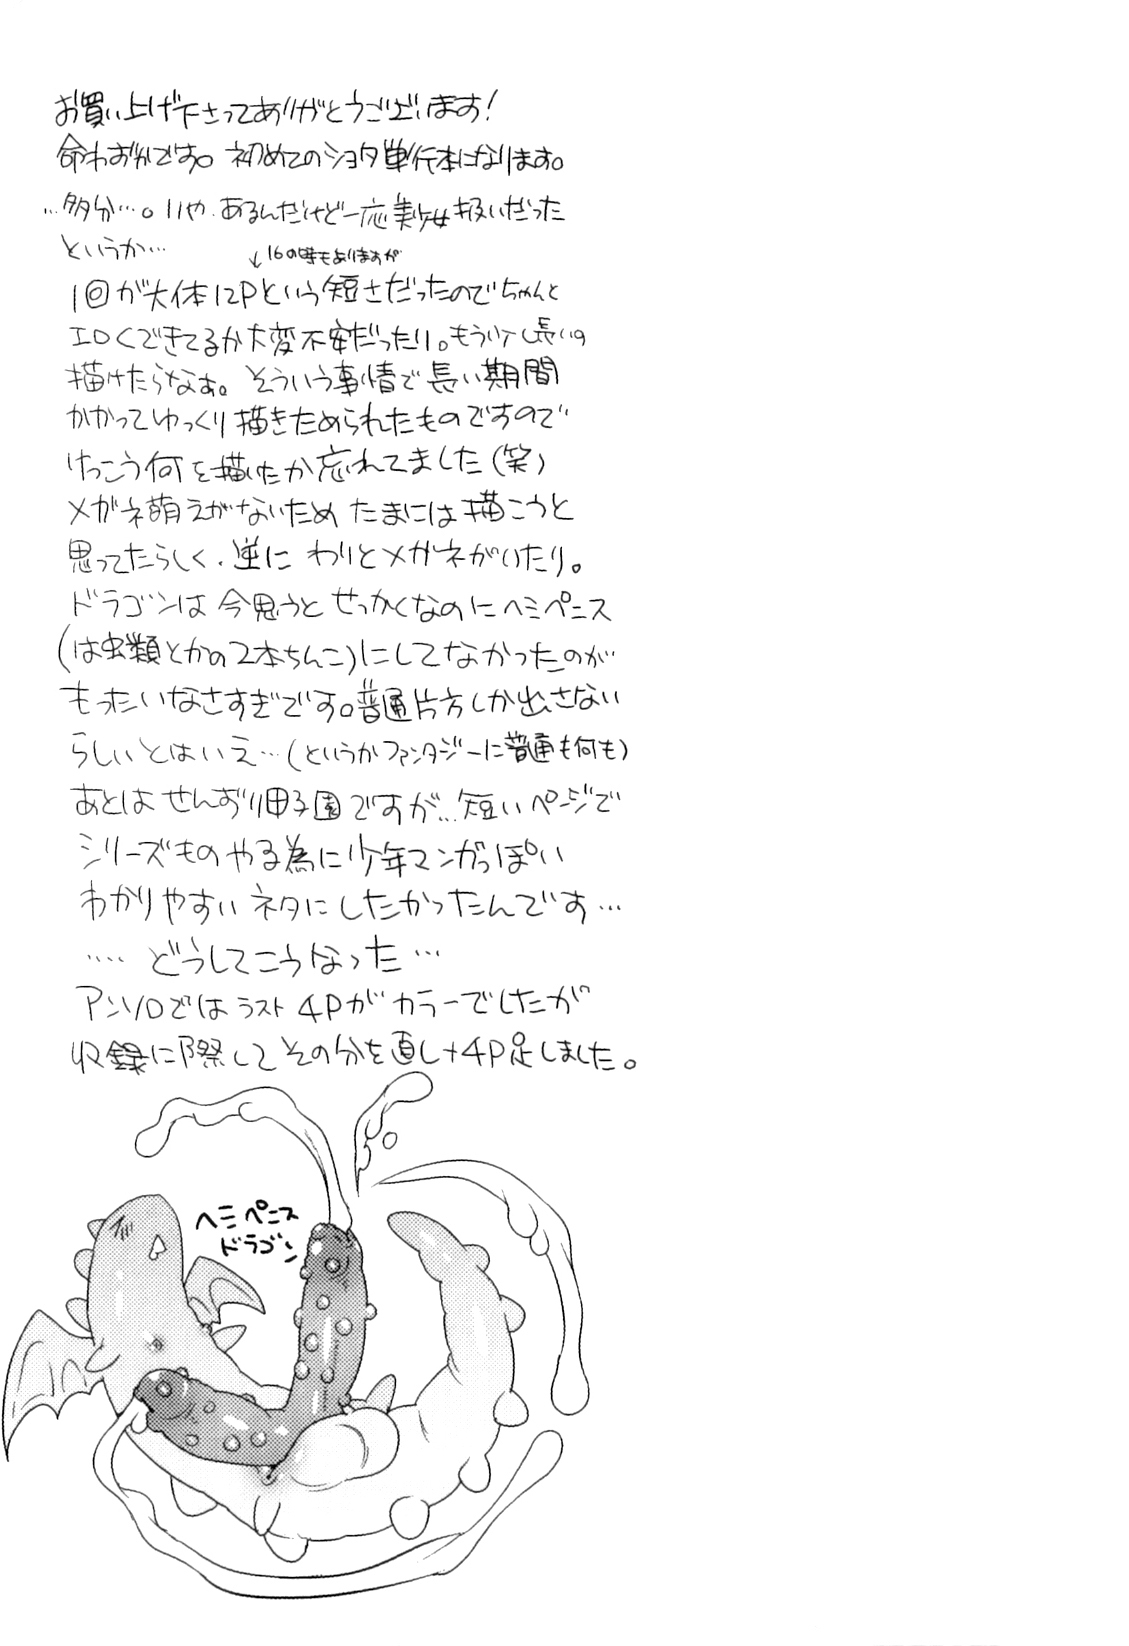 お買い上げ下さってありがとうございます!
命わずかです。初めてのショタ単行本になります。
…多分…。いや、あるんだけど一応美少女扱いだった
というか…
↓16の時もありますが
1回が大体12Pという短さだったのでちゃんと
エロくできてるか大変不安だったり。もう少し長いの
描けたらなぁ。そういう事情で長い期間
かかってゆっくり描きためられたものですので
けっこう何を描いたか忘れてました(笑)
メガネ萌えがないため たまには描こうと
思ってたらしく、逆に わりとメガネがいたり。
ドラゴンは今思うと せっかくなのにヘミペニス
(は虫類とかの2本ちんこ)にしてなかったのが
もったいなさすぎです。普通片方しか出さない
らしいとはいえ…(というかファンタジーに普通も何も)
あとは せんずり甲子園ですが…短いページで
シリーズものやる為に少年マンガっぽい
わかりやすいネタにしたかったんです…
…. どうしてこうなった…
アンソロではラスト4Pがカラーでしたが
収録に際してその分を直し+4P足しました。
ヘミペニス
ドラゴン